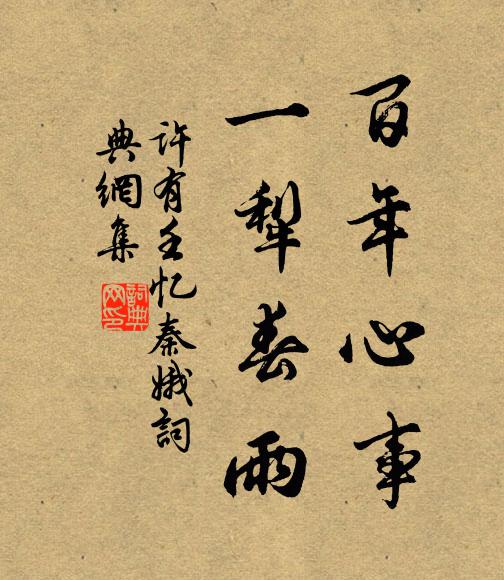 百年心事
一犁春雨
许有壬忆秦娥詞
典網集
詞典網印